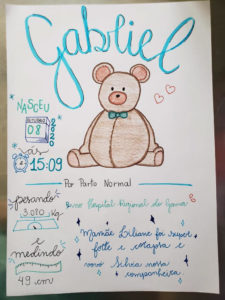 Gabriel
NASCEU
OUTUBRO
08
2020
às
15:09
Por Parto Normal
pesando
3.080 Kg
no Hospital Regional do Gama
Mamãe Liliane foi super
forte e corajosa e
vovó Silvia nossa
companheira
e
medindo
49 cm